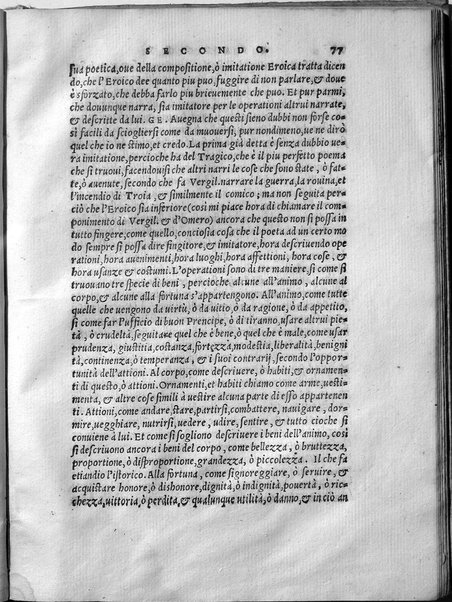 SECONDO. 77
sua poetica, oue della compositione, ò imitatione Eroica tratta dicen
do, che l'Eroico dee quanto piu puo, fuggire di non parlare, & doue
è sforzato, che debba farlo piu brieuemente che puo. Et pur parmi,
che douunque narra, sia imitatore per le operationi altrui narrate,
& descritte da lui. GE. Auegna che questi sieno dubbi non forse co
si facili da sciogliersi come da muouersi, pur nondimeno, ue ne dirò
quel che io ne stimo, et credo. La prima già detta è senza dubbio ue
ra imitatione, percioche ha del Tragico, che è il piu perfetto poema
che si truoui, facendouisi che altri narri le cose che sono state, ò fat-
te, ò auenute, secondo che fa Vergil. narrare la guerra, la rouina, et
l'incendio di Troia, & similmente il comico; ma non seguita per-
ciò che l'Eroico sia inferiore (cosi mi piace hora di chiamare il com-
ponimento di Vergil. & d'Omero) ancora che questo non si possa in
tutto fingere, come quello, conciosia cosa che il poeta ad un certo mo
do sempre si possa dire fingitore, & imitatore, hora descriuendo ope
rationi, hora auenimenti, hora luoghi, hora affettioni, hora cose, &
hora usanze & costumi. L'operationi sono di tre maniere, si come si
truouano tre specie di beni, percioche alcune all'animo, alcune al
corpo, & alcune alla fortuna s'appartengono. All'animo, come tutte
quelle che uengono da uirtù, ò da uitio, ò da ragione, ò da appetito,
si come far l'ufficio di buon Prencipe, ò di tiranno, usare altrui pie
tà, ò crudeltà, seguitare quel che è bene, ò quel che è male, come usar
prudenza, giustitia, costanza, fortezza, modestia, liberalità, benigni
tà, continenza, ò temperanza, & i suoi contrarij, secondo l'oppor-
tunità dell'attioni. Al corpo, come descriuere, ò habiti, & ornamen
ti di questo, ò attioni. Ornamenti, et habiti chiamo come arme, uesti-
menta, & altre cose simili à uestire alcuna parte di esso appartenen
ti. Attioni, come andare, stare, partirsi, combattere, nauigare, dor-
mire, uegghiare, nutrirsi, uedere, udire, sentire, & tutto cioche si
conuiene à lui. Et come si sogliono descriuere i beni dell'animo, così
si descriuono ancora i beni del corpo, come bellezza, ò bruttezza,
proportione, ò disproportione, grandezza, ò picolezza. Il che fa
etiandio l'istorico. Alla fortuna, come signoreggiare, ò seruire, &
acquistare honore, ò dishonore, dignità, ò indignità, pouertà, ò ric-
chezza, uittoria, ò perdita, & qualunque utilità, ò danno, & in ciò an